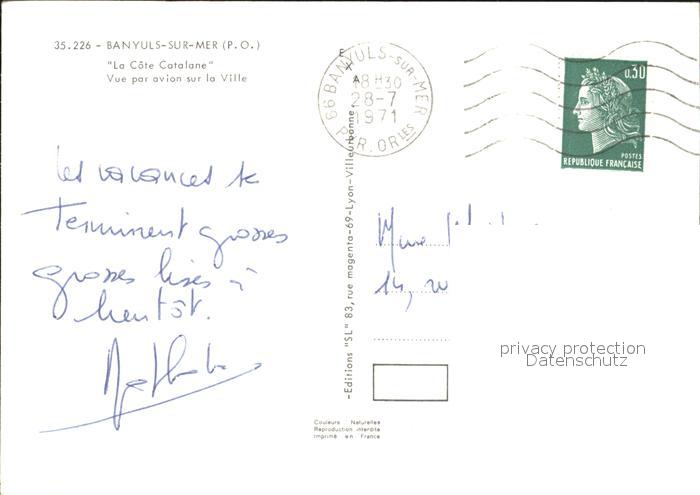 35.226 - BANYULS-SUR-MER (P.O.)
"La Côte Catalane"
Vue par avion sur la Ville
66 BANYULS-SUR-MER
18H30
28-7
1971
PYR. ORles
0,30
POSTES
REPUBLIQUE FRANÇAISE
Les vacances se
terminent grosses
grosses bises à
bientôt.
Mme
14, 
-Editions "SL" 83, rue magenta-69-Lyon-Villeurbanne
privacy protection
Datenschutz
Couleurs Naturelles
Reproduction interdite
Imprimé en France